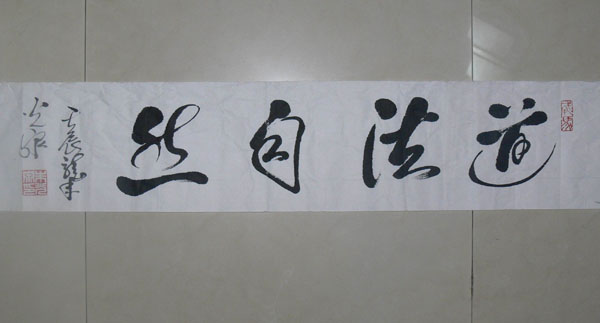 道法自然
壬辰龙年